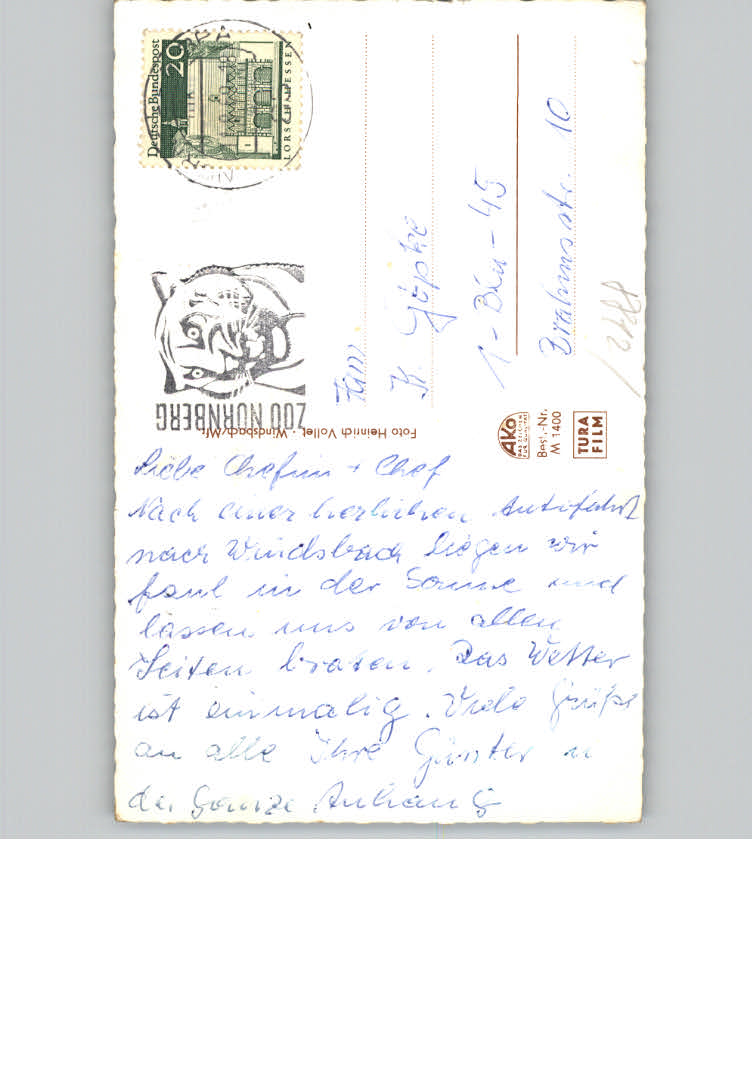 Deutsche Bundespost
20
LORSCH/HESSEN
ZOO NÜRNBERG
Foto Heinrich Vollet · Windsbach/Mfr.
Fam.
K. Göpke
1-Bln-45
Brahmsstr. 10
AKo
DAS ZEICHEN FÜR QUALITÄT
Best.-Nr.
M 1400
TURA
FILM
Liebe Chefin + Chef
Nach einer herlichen Autofahrt
nach Windsbach liegen wir
faul in der Sonne und
lassen uns von allen
Seiten braten. Das Wetter
ist einmalig. Viele Grüße
an alle Ihre Günter u
der Ganze Anhang